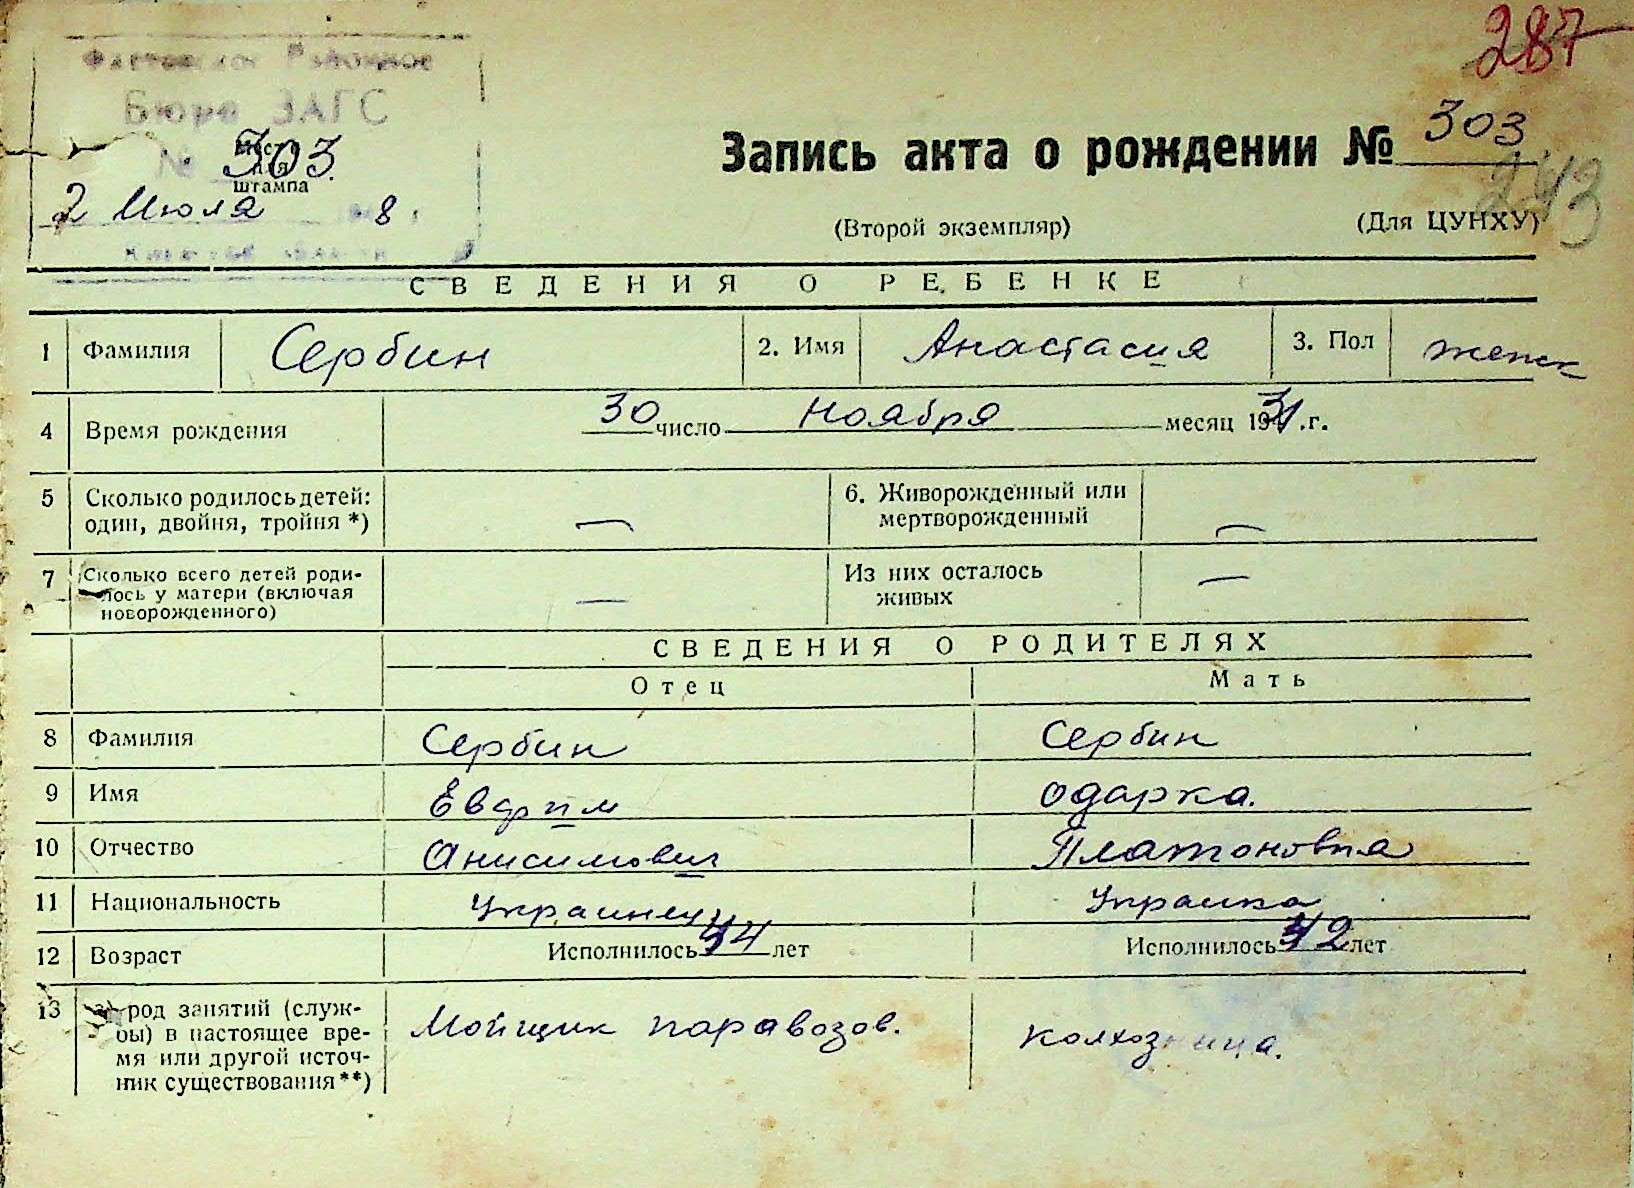 287
Фастовское Районное
Бюро ЗАГС
Место
№ 303
штампа
2 Июля 8 г
Киевской области
Запись акта о рождении № 303
243
(Второй экземпляр) (Для ЦУНХУ)
СВЕДЕНИЯ О РЕБЕНКЕ
1 Фамилия Сербин 2. Имя Анастасия 3. Пол женск
4 Время рождения 30 число Ноября месяц 1931 .г.
5 Сколько родилось детей: один, двойня, тройня *) — 6. Живорожденный или мертворожденный —
7 Сколько всего детей родилось у матери (включая новорожденного) — Из них осталось живых —
СВЕДЕНИЯ О РОДИТЕЛЯХ
Отец Мать
8 Фамилия Сербин Сербин
9 Имя Евдрим Одарка.
10 Отчество Анисимович Платоновна
11 Национальность Украинец Украинка
12 Возраст Исполнилось 44 лет Исполнилось 42 лет
13 а) род занятий (службы) в настоящее время или другой источник существования **) Мойщик паравозов. колхозница.